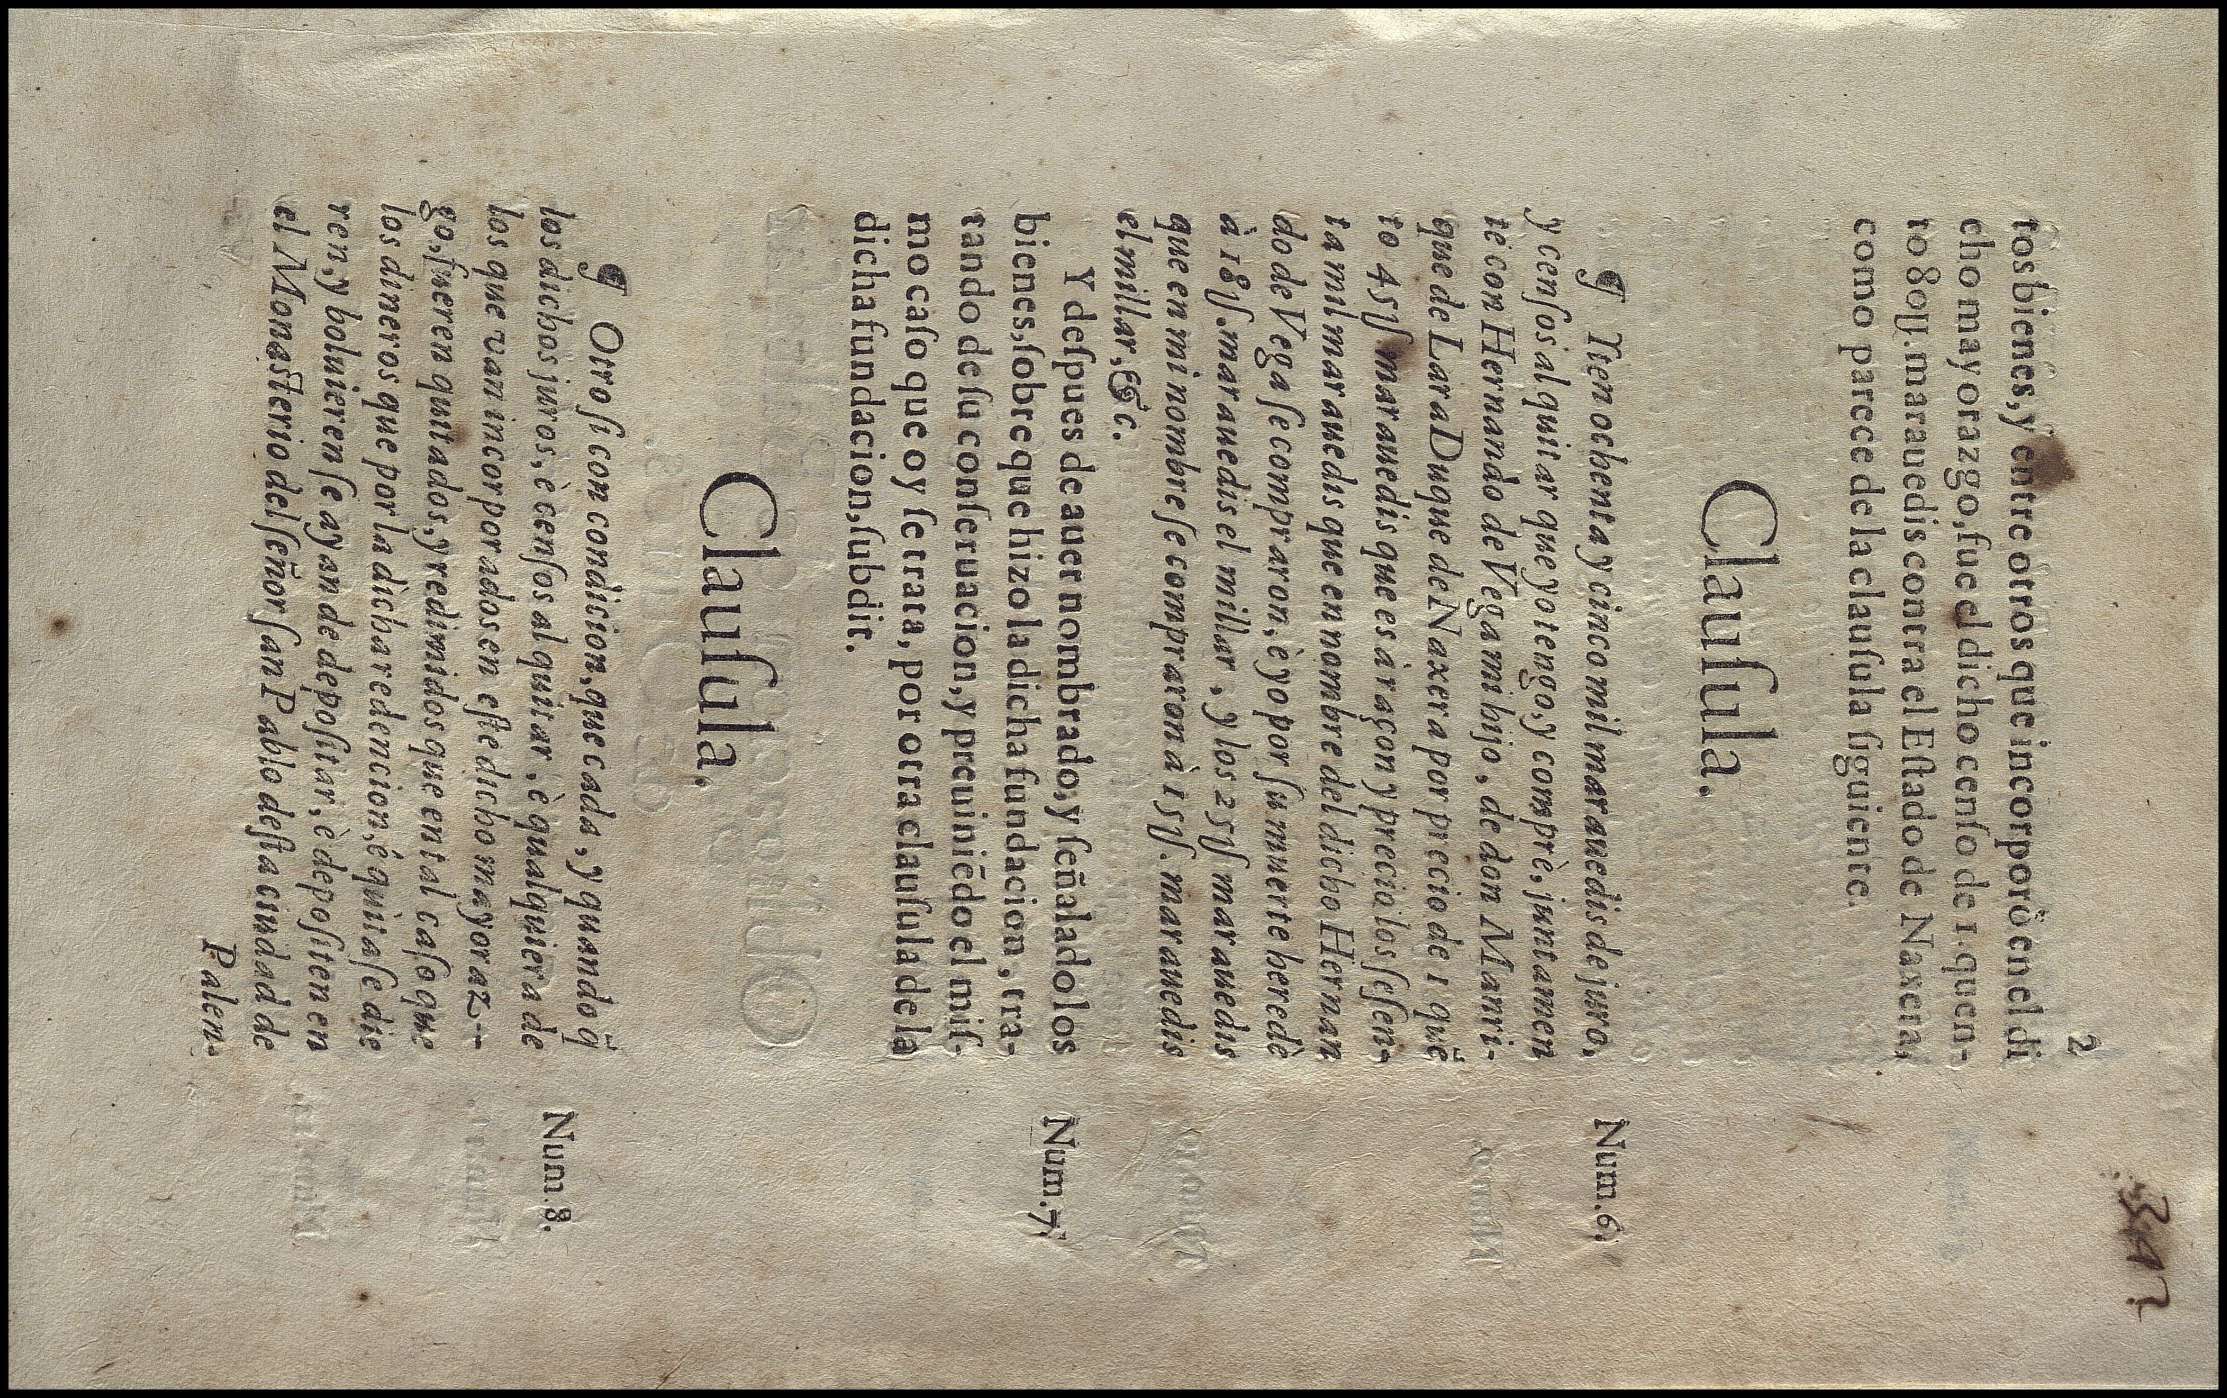 347
2
tos bienes, y entre otros que incorporò en el di
cho mayorazgo, fue el dicho censo de 1. quen-
to 80U. marauedis contra el Estado de Naxera,
como parece de la clausula siguiente.
Clauſula.
¶ Iten ochenta y cinco mil marauedis de juro, Num.6.
y cenſos al quitar que yo tengo, y comprè, juntamen
te con Hernando de Vega mi hijo, de don Manri-
que de Lara Duque de Naxera por precio de 1 quē
to 45U marauedis que es à raçon y precio los ſeſen-
ta mil marauedis que en nombre del dicho Hernan
do de Vega ſe compraron, è yo por ſu muerte heredè
à 18U. marauedis el millar, y los 25U marauedis
que en mi nombre ſe compraron à 15U. marauedis
el millar, &c.
Y deſpues de auer nombrado, y ſeñalado los
bienes, ſobre que hizo la dicha fundacion, tra- Num.7.
tando de ſu conſeruacion, y preuiniēdo el miſ-
mo caſo que oy ſe trata, por otra clauſula de la
dicha fundacion, ſubdit.
Clauſula.
¶ Otro ſi con condicion, que cada, y quando q̃
los dichos juros, è cenſos al quitar, è qualquiera de Num.8.
los que van incorporados en eſte dicho mayoraz--
go, fueren quitados, y redimidos que en tal caſo que
los dineros que por la dicha redencion, è quitaſe die
ren, y boluieren ſe ayan de depoſitar, è depoſiten en
el Monaſterio del ſeñor ſan Pablo deſta ciudad de
Palen-